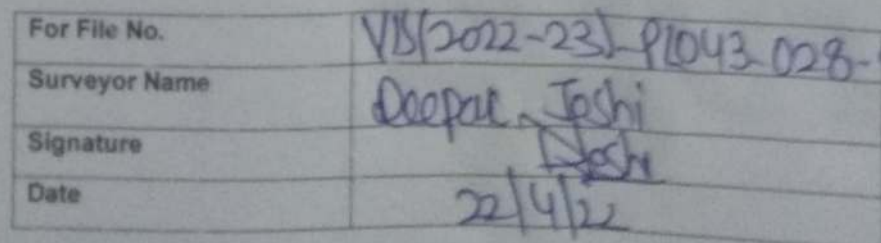 For File No. VIS(2022-23)-PL043-028-
Surveyor Name Deepak Joshi
Signature DJoshi
Date 22/4/22